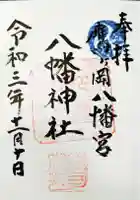 奉拝
岡八幡宮
八幡神社
令和三年十一月十日